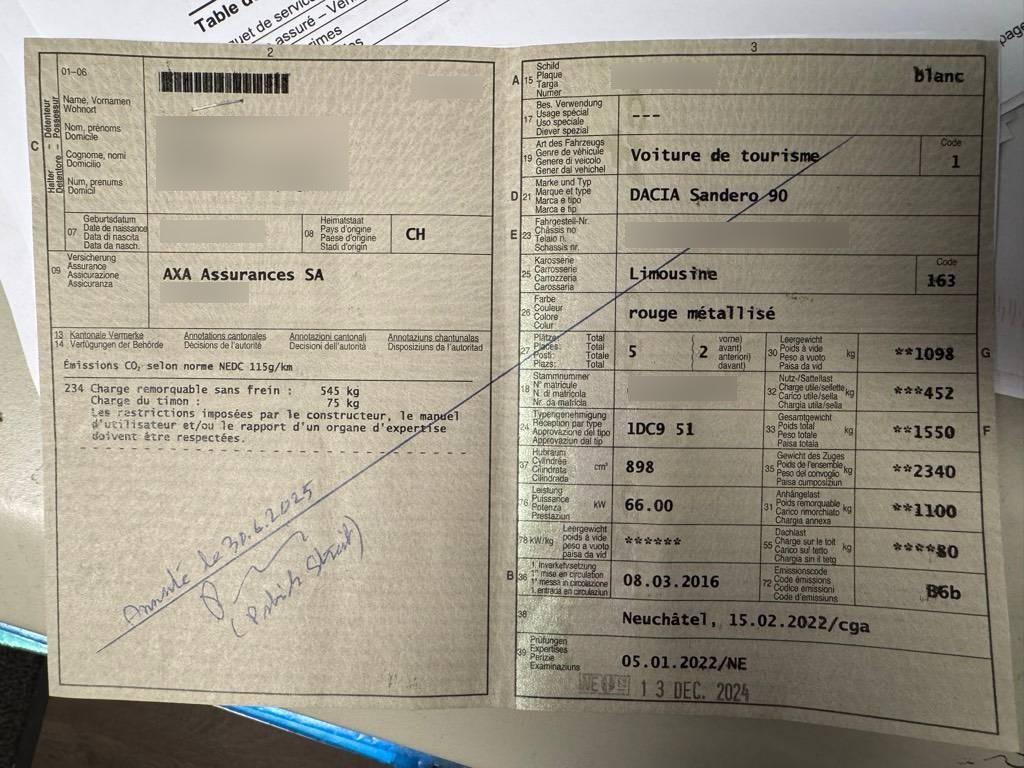 Table d
uet de servic
assuré – Vé
imes
page
2
01-06
Halter
Détenteur
Detentore
Possessur
C
Name, Vornamen
Wohnort
Nom, prénoms
Domicile
Cognome, nomi
Domicilio
Num, prenums
Domicil
07
Geburtsdatum
Date de naissance
Data di nascita
Data da nasch.
08
Heimatstaat
Pays d'origine
Paese d'origine
Stadi d'origin
CH
09
Versicherung
Assurance
Assicurazione
Assicuranza
AXA Assurances SA
13 Kantonale Vermerke Annotations cantonales Annotazioni cantonali Annotaziuns chantunalas
14 Verfügungen der Behörde Décisions de l'autorité Decisioni dell'autorità Disposiziuns da l'autoritad
Émissions CO₂ selon norme NEDC 115g/km
234 Charge remorquable sans frein : 545 kg
Charge du timon : 75 kg
Les restrictions imposées par le constructeur, le manuel
d'utilisateur et/ou le rapport d'un organe d'expertise
doivent être respectées.
Annulé le 30.6.2025
3
A 15
Schild
Plaque
Targa
Numer
blanc
17
Bes. Verwendung
Usage spécial
Uso speciale
Diever spezial
---
19
Art des Fahrzeugs
Genre de véhicule
Genere di veicolo
Gener dal vehichel
Voiture de tourisme
Code
1
D 21
Marke und Typ
Marque et type
Marca e tipo
Marca e tip
DACIA Sandero 90
E 23
Fahrgestell-Nr.
Châssis no
Telaio n.
Schassis nr.
25
Karosserie
Carrosserie
Carrozzeria
Carossaria
Limousine
Code
163
26
Farbe
Couleur
Colore
Colur
rouge métallisé
27
Plätze: Total
Places: Total
Posti: Totale
Plazs: Total
5
vorne)
avant)
anteriori)
davant)
2
30
Leergewicht
Poids à vide
Peso a vuoto
Paisa da vid
kg
**1098
G
18
Stammnummer
N° matricule
N. di matricola
Nr. da matricla
32
Nutz-/Sattellast
Charge utile/sellette
Carico utile/sella
Chargia utila/sella
kg
***452
24
Typengenehmigung
Réception par type
Approvazione del tipo
Approvaziun dal tip
1DC9 51
33
Gesamtgewicht
Poids total
Peso totale
Paisa totala
kg
**1550
F
37
Hubraum
Cylindrée
Cilindrata
Cilindrada
cm³
898
35
Gewicht des Zuges
Poids de l'ensemble
Peso del convoglio
Paisa cumposiziun
kg
**2340
76
Leistung
Puissance
Potenza
Prestaziun
kW
66.00
31
Anhängelast
Poids remorquable
Carico rimorchiato
Chargia annexa
kg
**1100
78 kW/kg
Leergewicht
poids à vide
peso a vuoto
paisa da vid
******
55
Dachlast
Charge sur le toit
Carico sul tetto
Chargia sin il tetg
kg
****80
B 36
1. Inverkehrsetzung
1re mise en circulation
1a messa in circolazione
1. entrada en circulaziun
08.03.2016
72
Emissionscode
Code émissions
Codice emissioni
Code d'emissiuns
B6b
38
Neuchâtel, 15.02.2022/cga
39
Prüfungen
Expertises
Perizie
Examinaziuns
05.01.2022/NE
NE
13 DEC. 2024